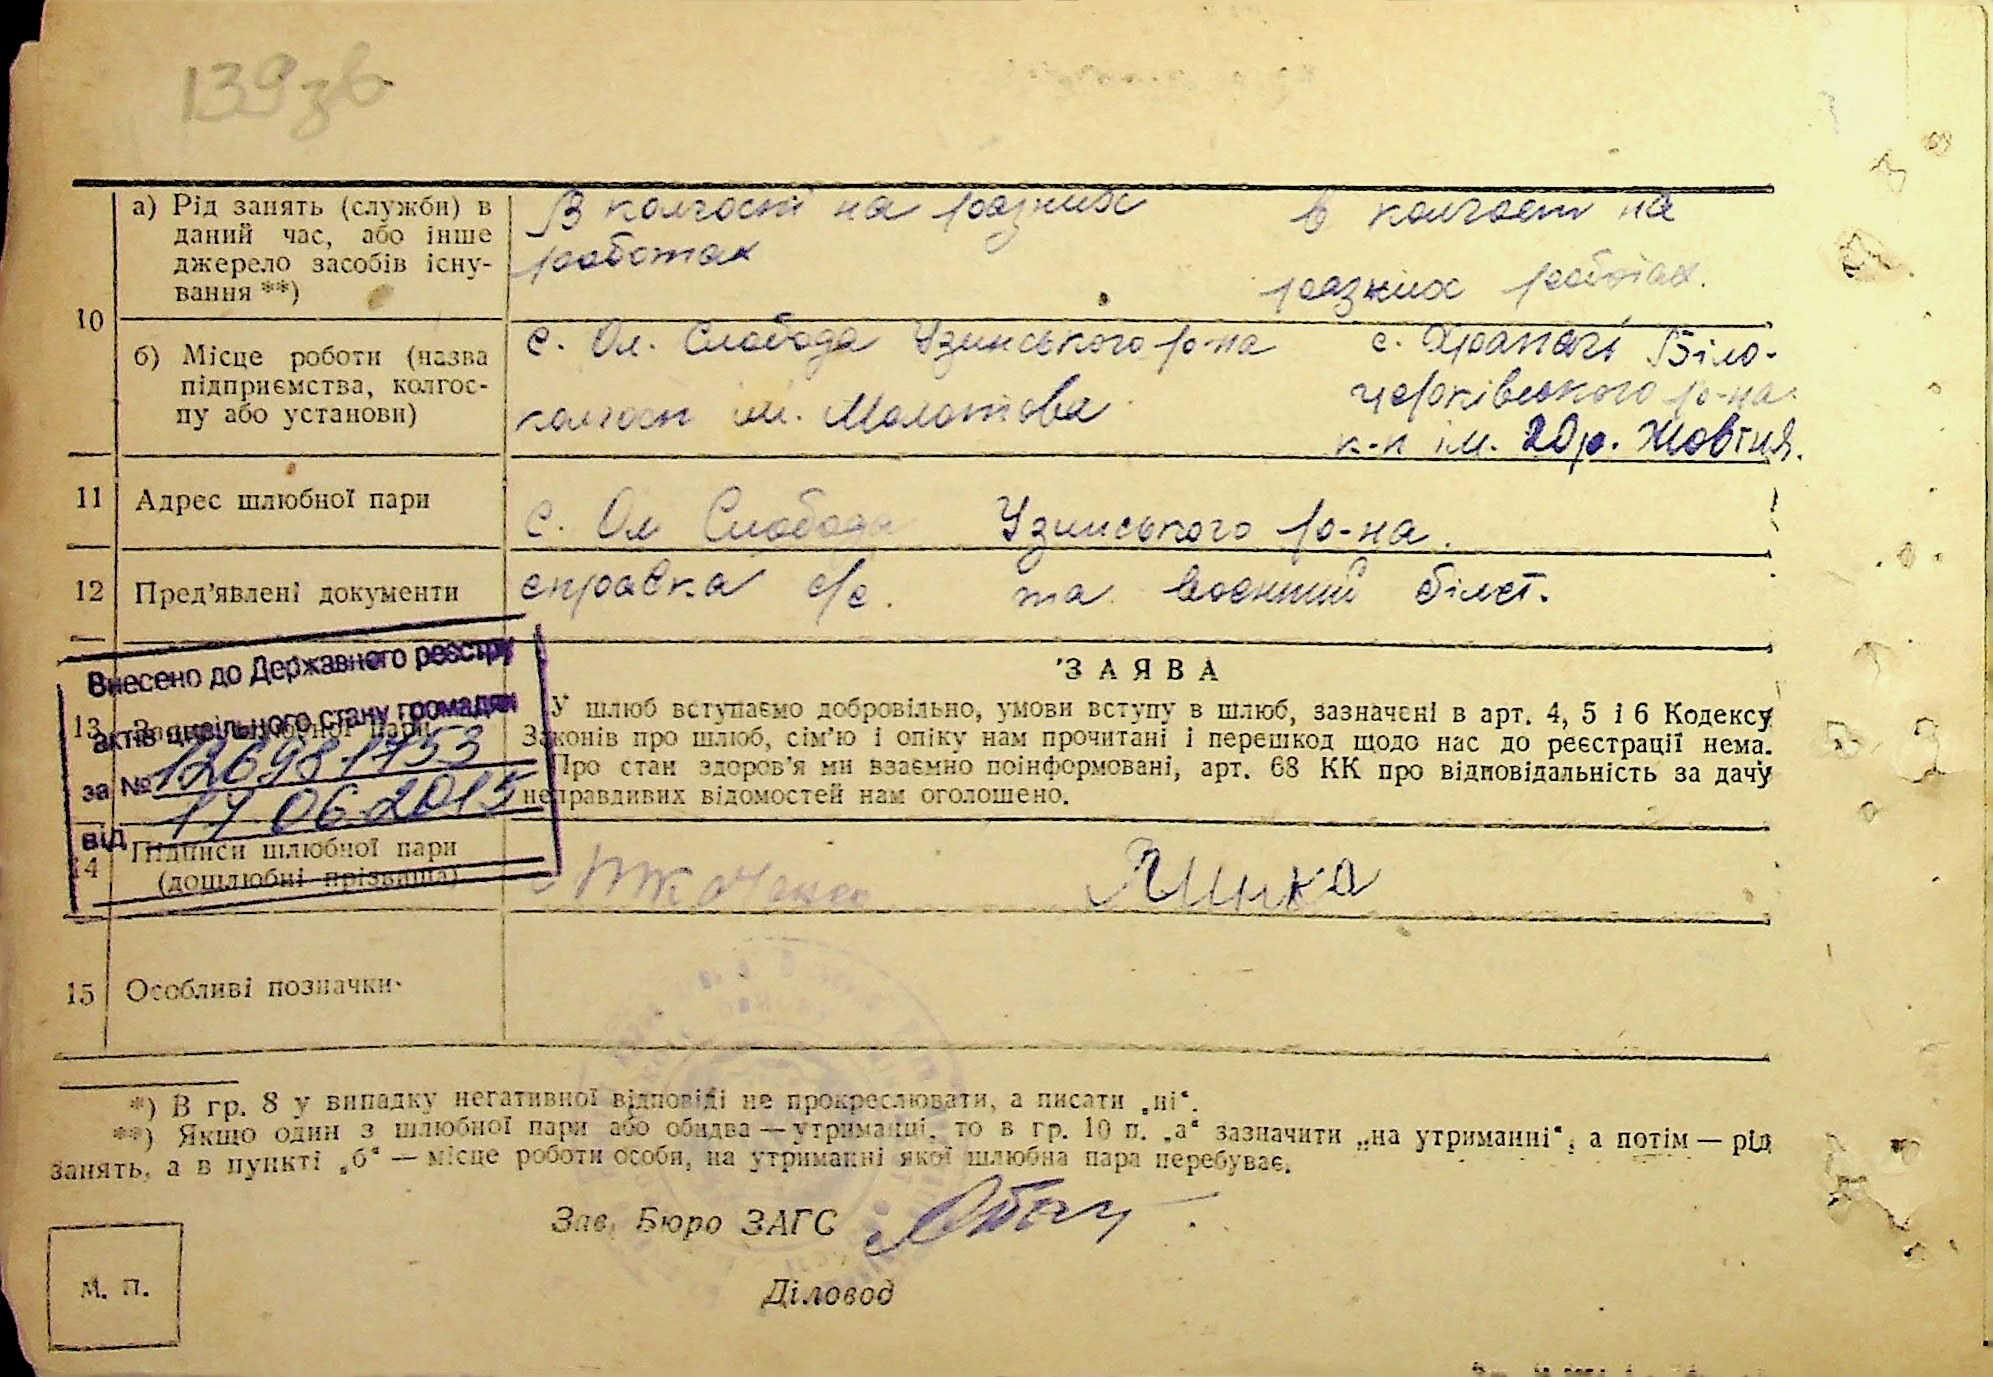 139зв
а) Рід занять (служби) в
даний час, або інше
джерело засобів існу-
вання **)
В колгоспі на разних
работах
в колгоспі на
разних работах.
10
б) Місце роботи (назва
підприємства, колгос-
пу або установи)
с. Ол. Слобода Узинського р-на
колгосп ім. Молотова
с. Храпачі Біло-
церківського р-на.
к-п ім. 20 р. Жовтня.
11 Адрес шлюбної пари
с. Ол Слобода Узинського р-на.
12 Пред'явлені документи
справка с/с. та военний білет.
Внесено до Державного реєстру
актів цивільного стану громадян
за № 126981753
від 17 06 2015
13
ЗАЯВА
У шлюб вступаємо добровільно, умови вступу в шлюб, зазначені в арт. 4, 5 і 6 Кодексу
Законів про шлюб, сім'ю і опіку нам прочитані і перешкод щодо нас до реєстрації нема.
Про стан здоров'я ми взаємно поінформовані, арт. 68 КК про відповідальність за дачу
неправдивих відомостей нам оголошено.
14 Підписи шлюбної пари
(дошлюбні прізвища)
Ткаченко
15 Особливі позначки
*) В гр. 8 у випадку негативної відповіді не прокреслювати, а писати „ні“.
**) Якщо один з шлюбної пари або обидва — утриманці, то в гр. 10 п. „а“ зазначити „на утриманні“, а потім — рід
занять, а в пункті „б“ — місце роботи особи, на утриманні якої шлюбна пара перебуває.
Зав. Бюро ЗАГС
Діловод
М. П.